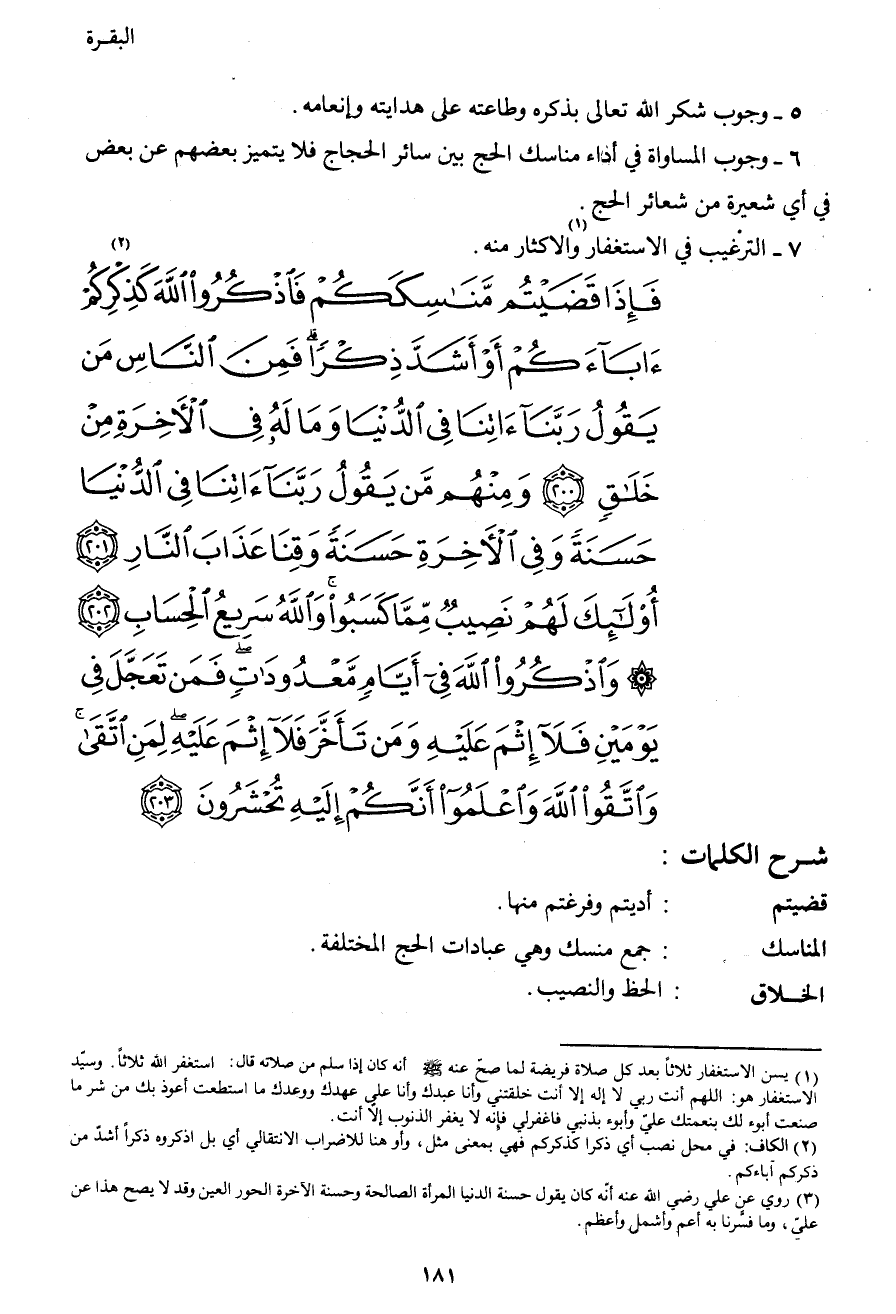 البقـرة
٥ ـ وجوب شكر الله تعالى بذكره وطاعته على هدايته وإنعامه .
٦ ـ وجوب المساواة في أداء مناسك الحج بين سائر الحجاج فلا يتميز بعضهم عن بعض
في أي شعيرة من شعائر الحج .
٧ ـ الترْغيب في الاستغفار (١) والاكثار منه .
فَإِذَا قَضَيْتُم مَّنَاسِكَكُمْ فَاذْكُرُوا اللَّهَ كَذِكْرِكُمْ (٢)
ءَابَآءَكُمْ أَوْ أَشَدَّ ذِكْرًا ۗ فَمِنَ النَّاسِ مَن
يَقُولُ رَبَّنَآ ءَاتِنَا فِي الدُّنْيَا وَمَا لَهُۥ فِي الْأَخِرَةِ مِنْ
خَلَٰقٍ ﴿٢٠٠﴾ وَمِنْهُم مَّن يَقُولُ رَبَّنَآ ءَاتِنَا فِي الدُّنْيَا
حَسَنَةً وَفِي الْأَخِرَةِ حَسَنَةً وَقِنَا عَذَابَ النَّارِ ﴿٢٠١﴾
أُوْلَٰٓئِكَ لَهُمْ نَصِيبٌ مِّمَّا كَسَبُواْ ۚ وَاللَّهُ سَرِيعُ الْحِسَابِ ﴿٢٠٢﴾
۞ وَاذْكُرُواْ اللَّهَ فِيٓ أَيَّامٍ مَّعْدُودَٰتٍ ۖ فَمَن تَعَجَّلَ فِي
يَوْمَيْنِ فَلَآ إِثْمَ عَلَيْهِ وَمَن تَأَخَّرَ فَلَآ إِثْمَ عَلَيْهِ ۖ لِمَنِ اتَّقَىٰ ۗ
وَاتَّقُواْ اللَّهَ وَاعْلَمُوٓاْ أَنَّكُمْ إِلَيْهِ تُحْشَرُونَ ﴿٢٠٣﴾
شـرح الكلمات :
قضيتم : أديتم وفرغتم منها .
المناسك : جمع منسك وهي عبادات الحج المختلفة .
الخـلاق : الحظ والنصيب .
(١) يسن الاستغفار ثلاثاً بعد كل صلاة فريضة لما صحّ عنه ﷺ أنه كان إذا سلم من صلاته قال : استغفر الله ثلاثاً . وسيّد
الاستغفار هو: اللهم أنت ربي لا إله إلا أنت خلقتني وأنا عبدك وأنا على عهدك ووعدك ما استطعت أعوذ بك من شر ما
صنعت أبوء لك بنعمتك عليّ وأبوء بذنبي فاغفرلي فإنه لا يغفر الذنوب إلّا أنت.
(٢) الكاف: في محل نصب أي ذكرا كذكركم فهي بمعنى مثل ، وأو هنا للاضراب الانتقالي أي بل اذكروه ذكراً أشدّ من
ذكركم آباءكم .
(٣) روي عن علي رضي الله عنه أنّه كان يقول حسنة الدنيا المرأة الصالحة وحسنة الآخرة الحور العين وقد لا يصح هذا عن
عليّ ، وما فسَّرنا به أعم وأشمل وأعظم .
١٨١